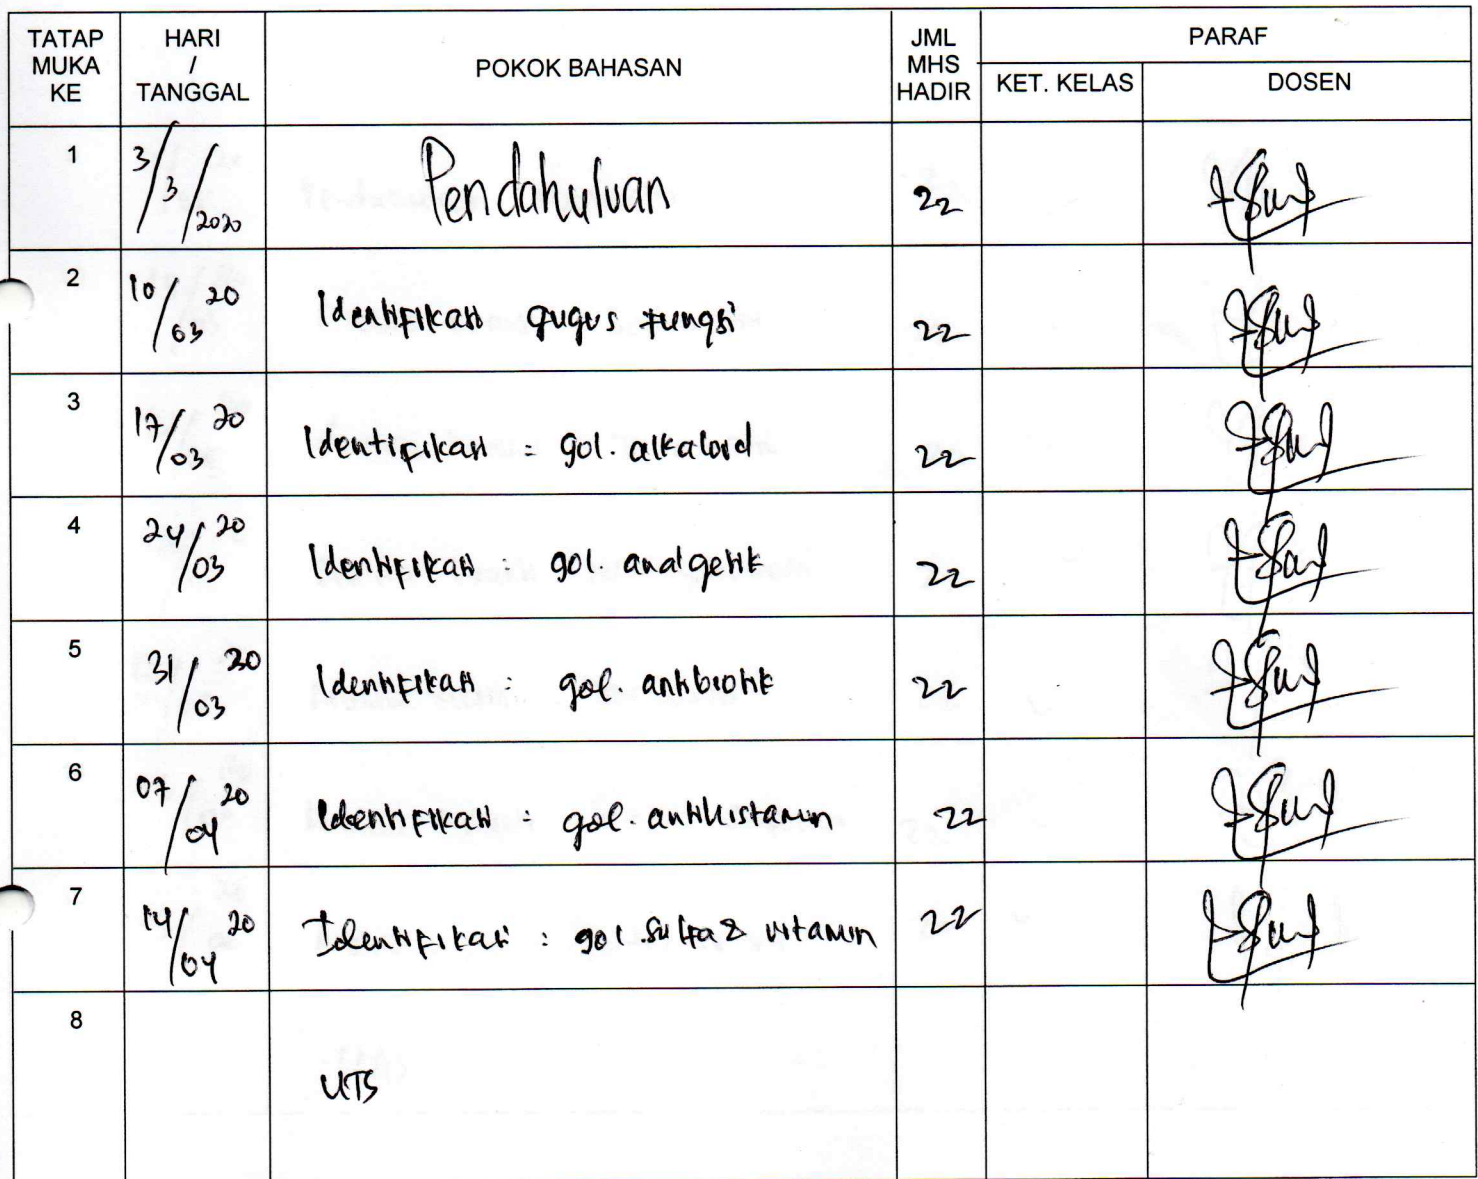 TATAP MUKA KE | HARI / TANGGAL | POKOK BAHASAN | JML MHS HADIR | PARAF
KET. KELAS | DOSEN
1 | 3/3/2020 | Pendahuluan | 22
2 | 10/03 20 | Identifikasi gugus fungsi | 22
3 | 17/03 20 | Identifikasi : gol. alkaloid | 22
4 | 24/03 20 | Identifikasi : gol. analgetik | 22
5 | 31/03 20 | Identifikasi : gol. antibiotik | 22
6 | 07/04 20 | Identifikasi : gol. antihistamin | 22
7 | 14/04 20 | Identifikasi : gol. sulfa & vitamin | 22
8 | UTS